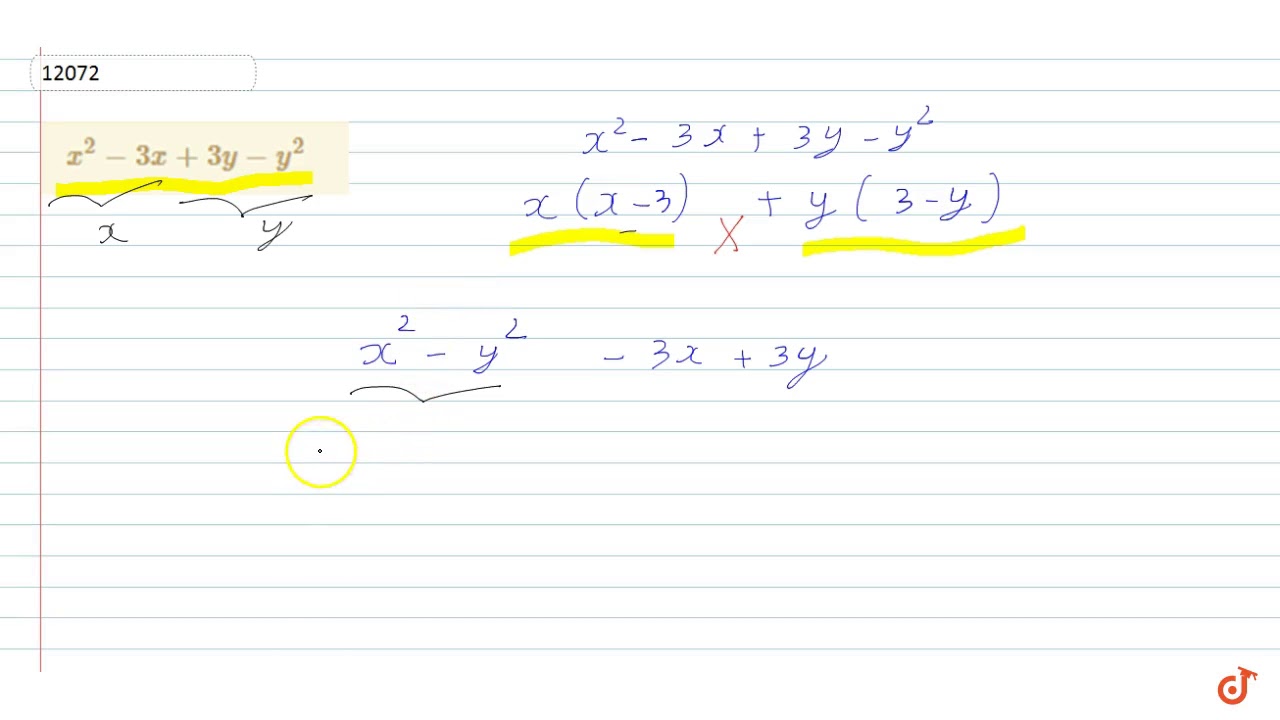 12072
x² − 3x + 3y − y²
x y
x² − 3x + 3y − y²
x (x − 3) + y (3 − y)
X
x² − y² − 3x + 3y
d